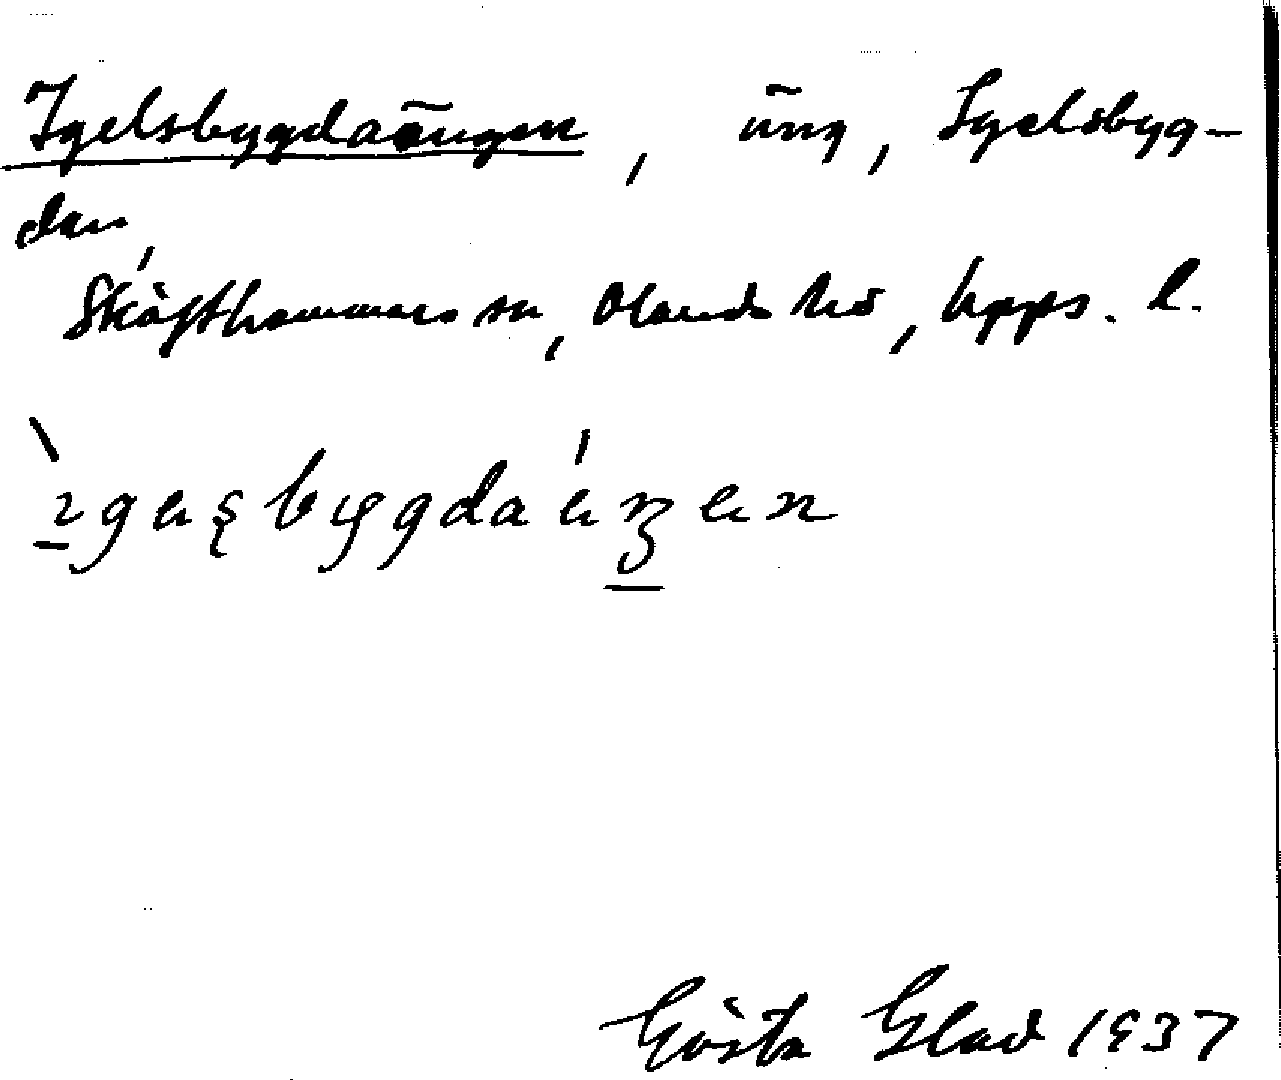 Igelsbygdaängen, äng, Igelsbyg-
dan,
Skäfthammars sn, Olands hd, Upps. l.
ìgesbygdaéŋen
Gösta Glad 1937